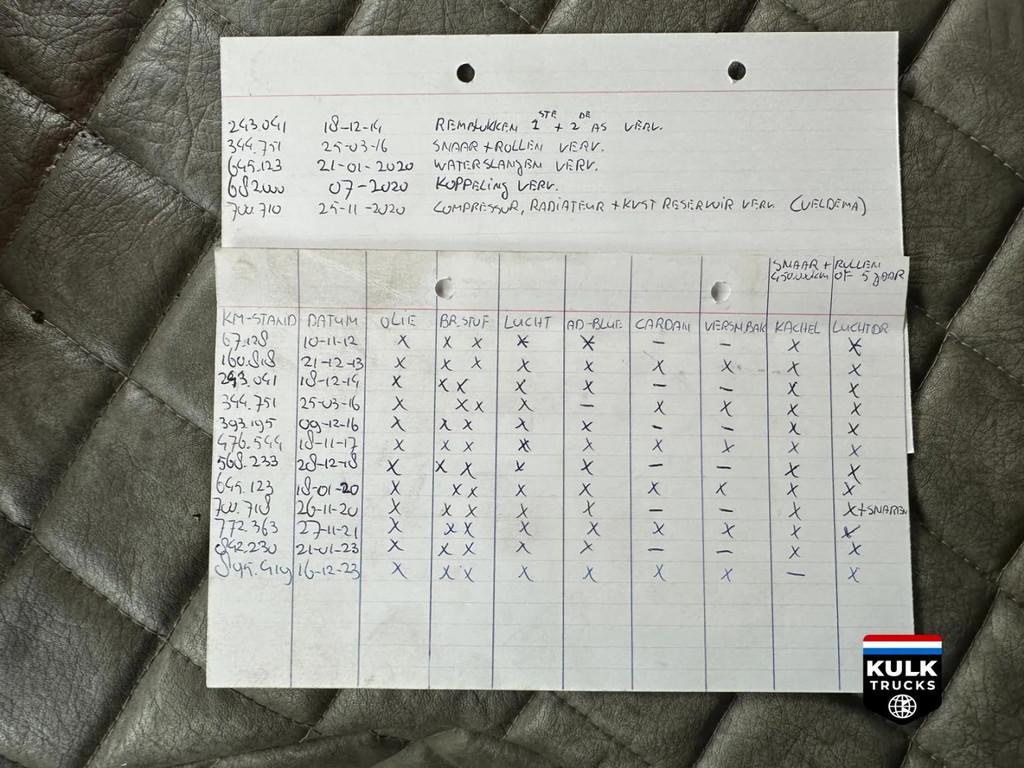 243.041 18-12-14 REMBLOKKEN 1STE + 2DE AS VERV.
344.751 25-03-16 SNAAR + ROLLEN VERV.
645.123 21-01-2020 WATERSLANGEN VERV.
682000 07-2020 KOPPELING VERV.
700.710 25-11-2020 COMPRESSOR, RADIATEUR + KVST RESERVOIR VERV. (VELDEMA)
SNAAR + ROLLEN
450.000km OF 5 JAAR
KM-STAND DATUM OLIE BR.STOF LUCHT AD-BLUE CARDAN VERSN.BAK KACHEL LUCHTDR
67.128 10-11-12 X X X X X - - X X
160.818 21-12-13 X X X X X X X X X
243.041 18-12-14 X X X X X - - X X
344.751 25-03-16 X X X X - X X X X
393.195 09-12-16 X X X X X - - X X
476.544 18-11-17 X X X X X X X X X
568.233 28-12-18 X X X X X - - X X
645.123 18-01-20 X X X X X X X X X
700.718 26-11-20 X X X X X - - X X+SNAREN
772.363 27-11-21 X X X X X X X X X
842.230 21-01-23 X X X X X - - X X
16-12-23 X X X X X X X - X
KULK
TRUCKS